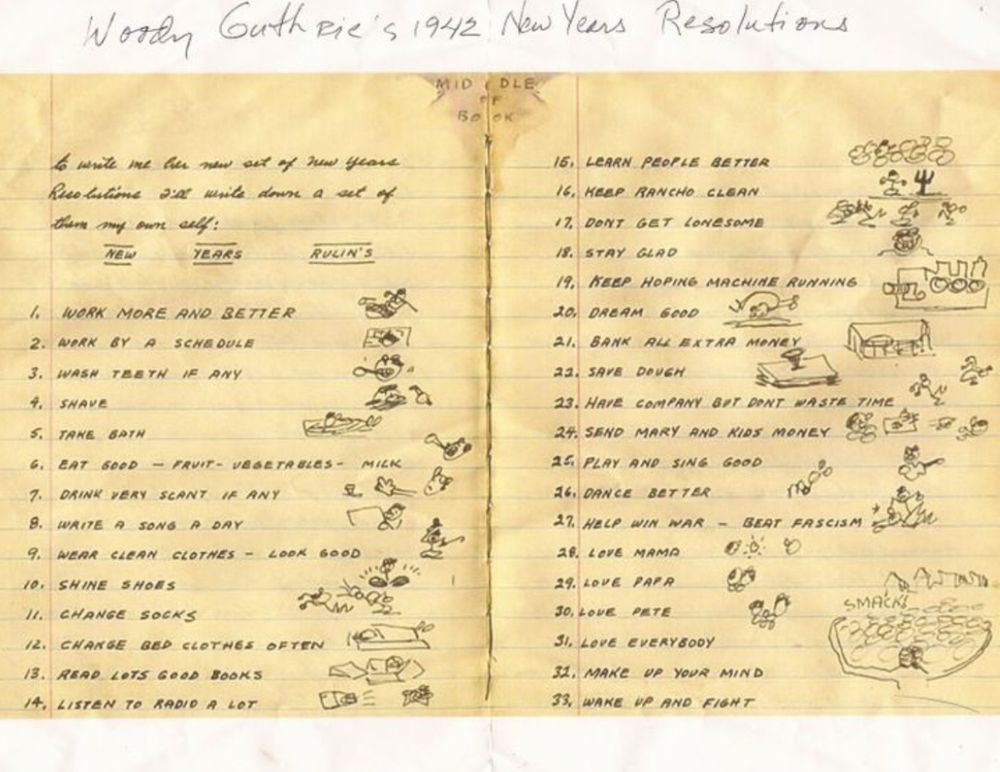 Woody Guthrie's 1942 New Years Resolutions
MIDDLE
OF
BOOK
to write me her new set of new years
Resolutions I'll write down a set of
them my own self:
NEW YEARS RULIN'S
1. WORK MORE AND BETTER
2. WORK BY A SCHEDULE
3. WASH TEETH IF ANY
4. SHAVE
5. TAKE BATH
6. EAT GOOD — FRUIT- VEGETABLES- MILK
7. DRINK VERY SCANT IF ANY
8. WRITE A SONG A DAY
9. WEAR CLEAN CLOTHES - LOOK GOOD
10. SHINE SHOES
11. CHANGE SOCKS
12. CHANGE BED CLOTHES OFTEN
13. READ LOTS GOOD BOOKS
14. LISTEN TO RADIO A LOT
15. LEARN PEOPLE BETTER
16. KEEP RANCHO CLEAN
17. DONT GET LONESOME
18. STAY GLAD
19. KEEP HOPING MACHINE RUNNING
20. DREAM GOOD
21. BANK ALL EXTRA MONEY
22. SAVE DOUGH
23. HAVE COMPANY BUT DONT WASTE TIME
24. SEND MARY AND KIDS MONEY
25. PLAY AND SING GOOD
26. DANCE BETTER
27. HELP WIN WAR - BEAT FASCISM
28. LOVE MAMA
29. LOVE PAPA
30. LOVE PETE
SMACK!
31. LOVE EVERYBODY
32. MAKE UP YOUR MIND
33. WAKE UP AND FIGHT